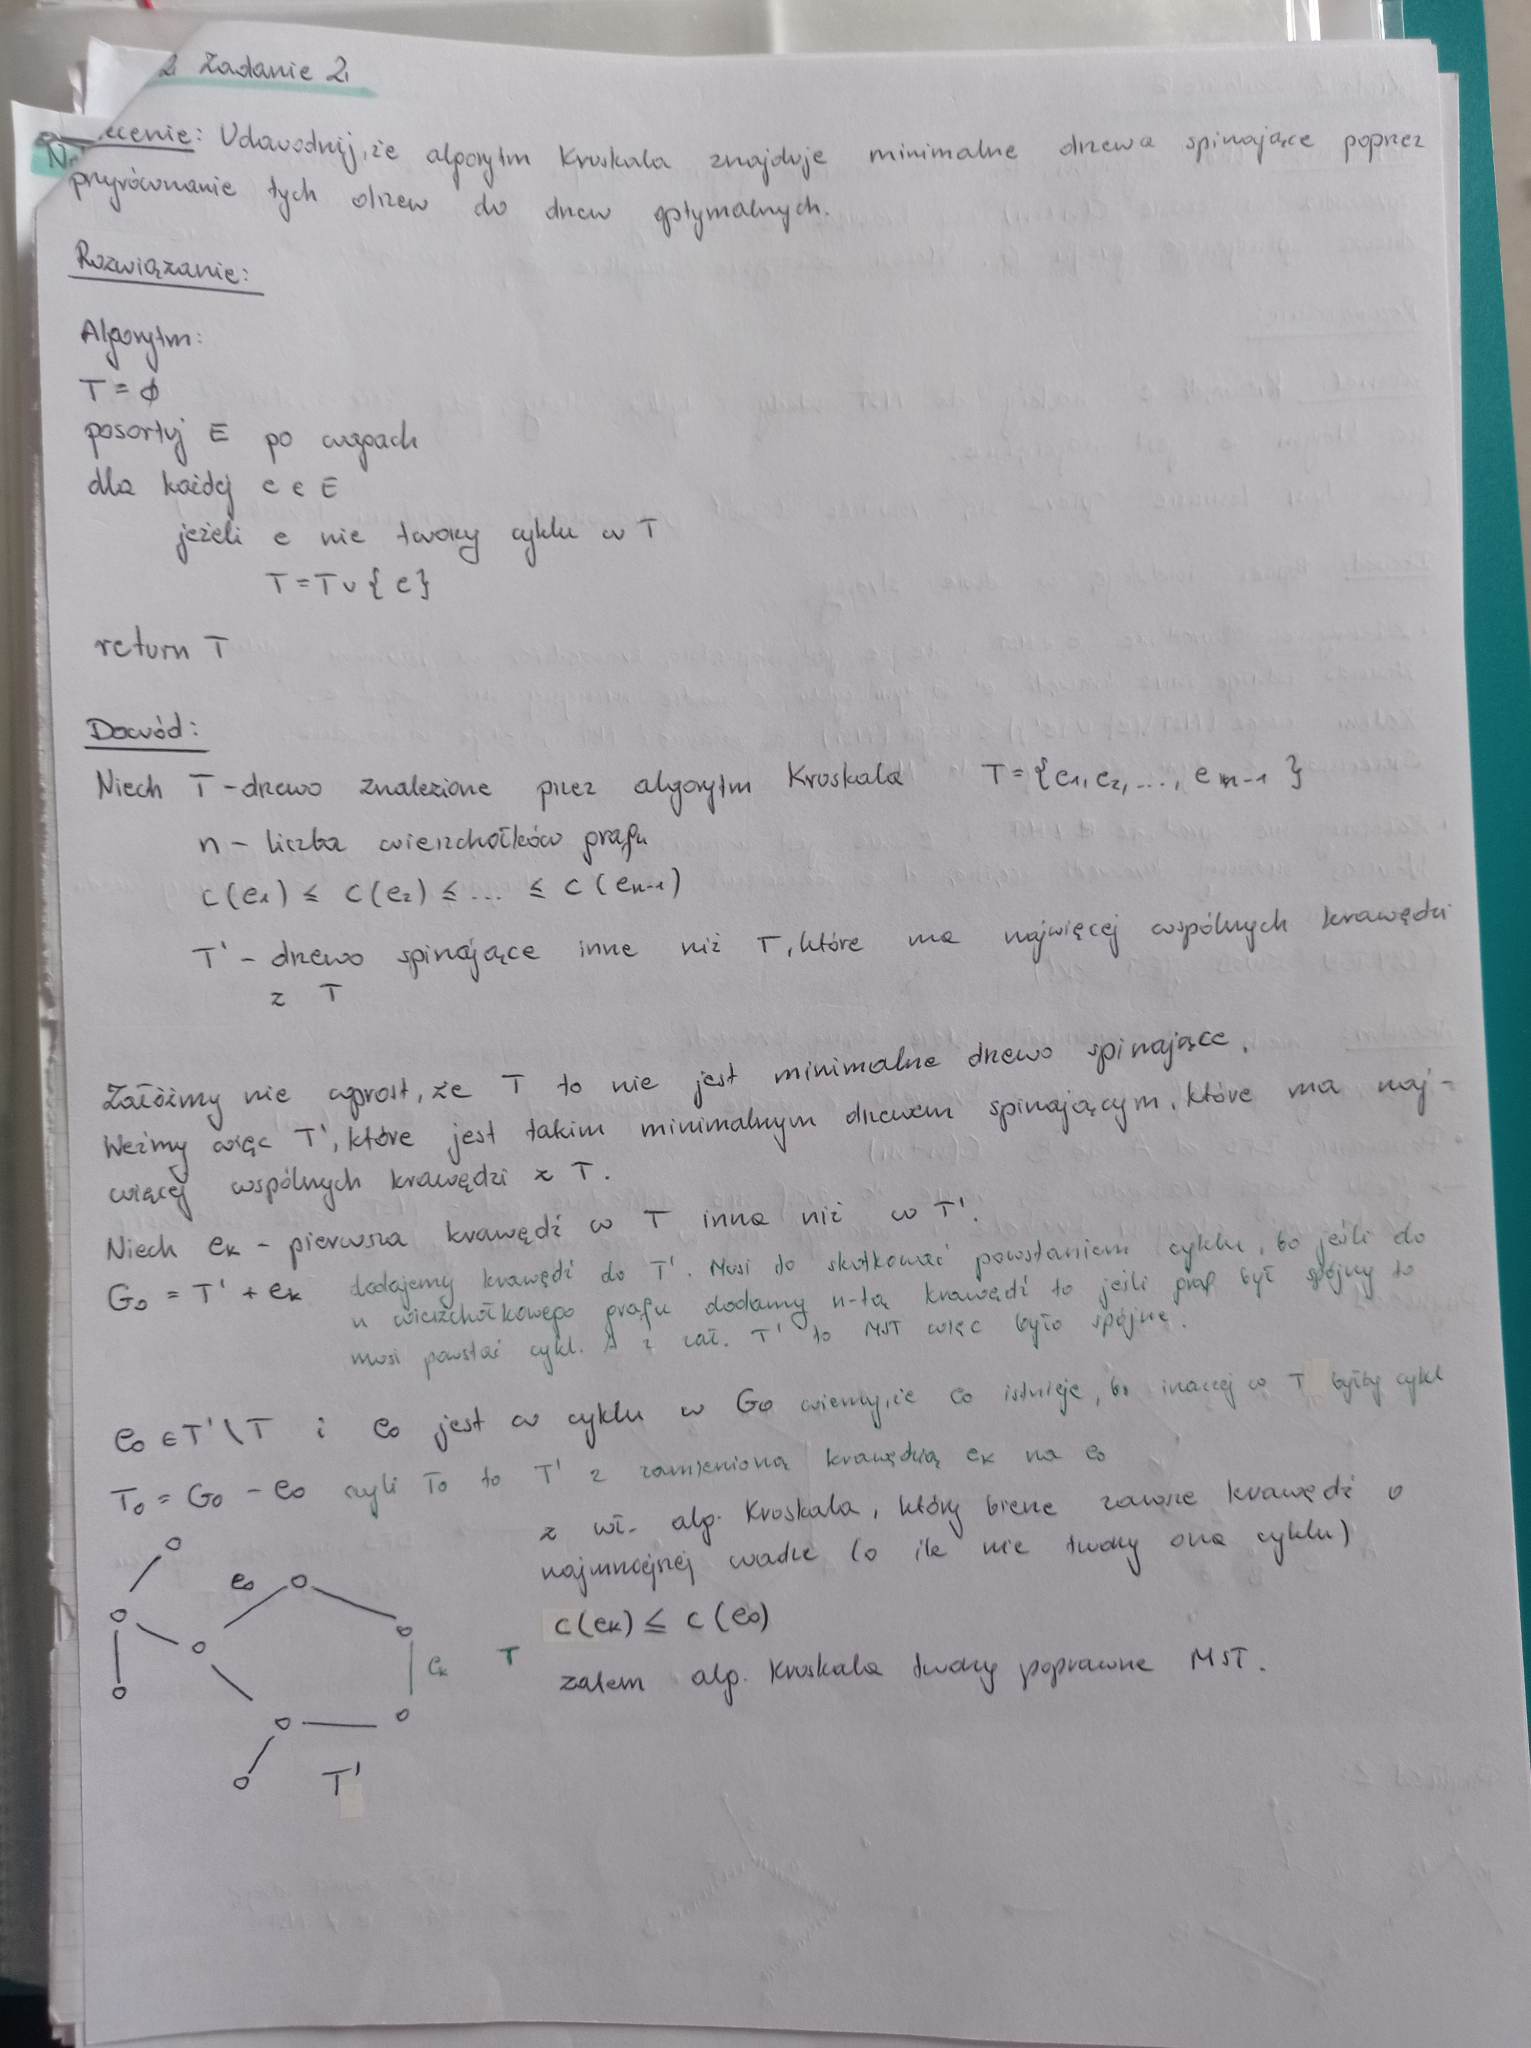 2. Zadanie 2.
ecenie: Udowodnij, że algorytm Kruskala znajduje minimalne drzewa spinające poprzez
przyrównanie tych drzew do drzew optymalnych.
Rozwiązanie:
Algorytm:
T = ∅
posortuj E po wagach
dla każdej e ∈ E
jeżeli e nie tworzy cyklu w T
T = T ∪ { e }
return T
Dowód:
Niech T - drzewo znalezione przez algorytm Kruskala T = { e1, e2, ..., en-1 }
n - liczba wierzchołków grafu
c(e1) ≤ c(e2) ≤ ... ≤ c(en-1)
T' - drzewo spinające inne niż T, które ma najwięcej wspólnych krawędzi
z T
Załóżmy nie wprost, że T to nie jest minimalne drzewo spinające.
Weźmy więc T', które jest takim minimalnym drzewem spinającym, które ma naj-
więcej wspólnych krawędzi z T.
Niech ek - pierwsza krawędź w T inna niż w T'.
G0 = T' + ek dodajemy krawędź do T'. Musi to skutkować powstaniem cyklu, bo jeśli do
n wierzchołkowego grafu dodamy n-tą krawędź to jeśli graf był spójny to
musi powstać cykl. A z zał. T' to MST więc było spójne.
e0 ∈ T' \ T i e0 jest w cyklu w G0 wiemy, że e0 istnieje, bo inaczej w T byłby cykl
T0 = G0 - e0 czyli T0 to T' z zamienioną krawędzią ek na e0
z wł. alg. Kruskala, który bierze zawsze krawędź o
najmniejszej wadze (o ile nie tworzy ona cyklu)
c(ek) ≤ c(e0)
zatem alg. Kruskala tworzy poprawne MST.
e0
ek
T
T'